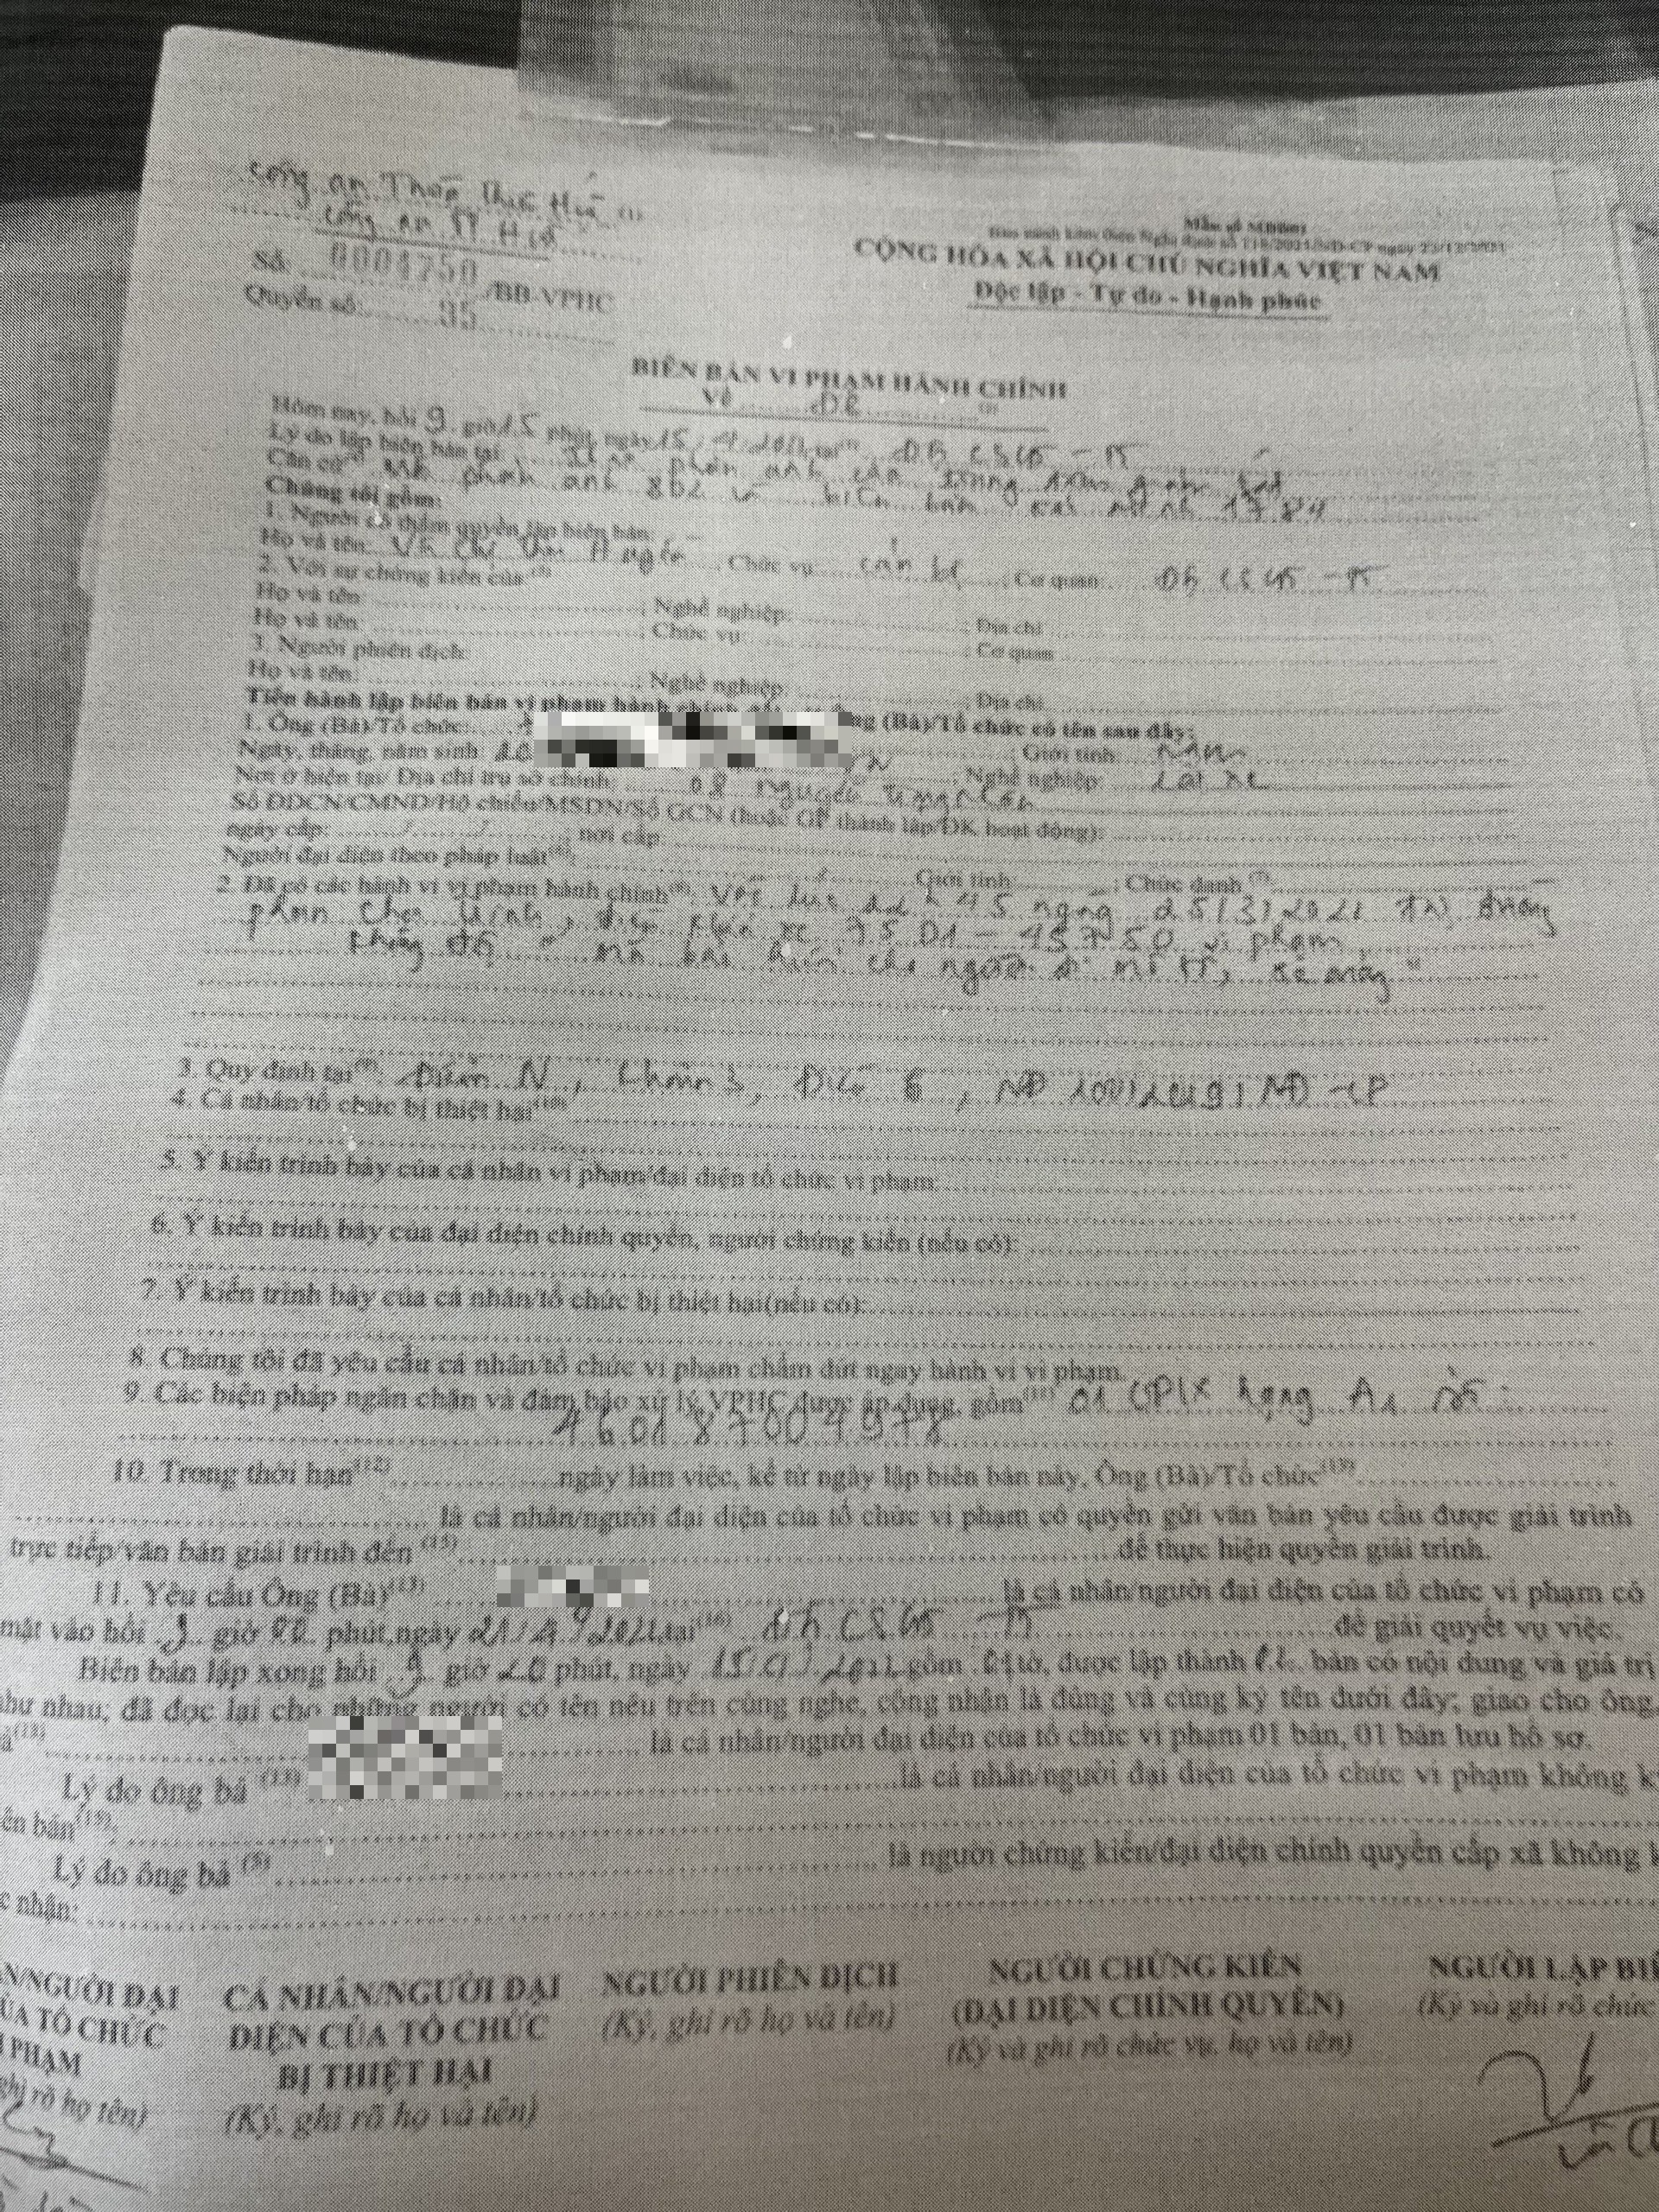 Công an Thừa Thiên Huế (1)
Công an TP Huế
Số: 0004750 /BB-VPHC
Quyển số: 35
Mẫu số MBB01
Ban hành kèm theo Nghị định số 118/2021/NĐ-CP ngày 23/12/2021
CỘNG HÒA XÃ HỘI CHỦ NGHĨA VIỆT NAM
Độc lập - Tự do - Hạnh phúc
BIÊN BẢN VI PHẠM HÀNH CHÍNH
Về ĐB (2)
Hôm nay, hồi 9 giờ 15 phút, ngày 15/4/2022, tại (3)
Lý do lập biên bản tại:
Căn cứ
Chúng tôi gồm:
1. Người có thẩm quyền lập biên bản:
Họ và tên: ; Chức vụ: cán bộ ; Cơ quan:
2. Với sự chứng kiến của (5)
Họ và tên: ; Nghề nghiệp: ; Địa chỉ
Họ và tên: ; Chức vụ: ; Cơ quan
3. Người phiên dịch:
Họ và tên: ; Nghề nghiệp: ; Địa chỉ
Tiến hành lập biên bản vi phạm hành chính (Bà)/Tổ chức có tên sau đây:
1. Ông (Bà)/Tổ chức: ; Giới tính: Nam
Ngày, tháng, năm sinh: ; Nghề nghiệp: Lái xe
Nơi ở hiện tại/ Địa chỉ trụ sở chính: 08 Nguyễn
Số ĐDCN/CMND/Hộ chiếu/MSDN/Số GCN (hoặc GP thành lập/ĐK hoạt động):
ngày cấp: / / ; nơi cấp:
Người đại diện theo pháp luật (6): Giới tính: ; Chức danh (7):
2. Đã có các hành vi vi phạm hành chính (8): Vào lúc 11h45 ngày 25/3/2022 tại đường
phan chu trinh, điều khiển xe 75D1-457.50 vi phạm
không đội "mũ bảo hiểm cho người đi mô tô, xe máy"
3. Quy định tại (9): Điểm N, khoản 3, Điều 6, NĐ 100/2019/NĐ-CP
4. Cá nhân/tổ chức bị thiệt hại (10)
5. Ý kiến trình bày của cá nhân vi phạm/đại diện tổ chức vi phạm:
6. Ý kiến trình bày của đại diện chính quyền, người chứng kiến (nếu có):
7. Ý kiến trình bày của cá nhân/tổ chức bị thiệt hại(nếu có):
8. Chúng tôi đã yêu cầu cá nhân/tổ chức vi phạm chấm dứt ngay hành vi vi phạm.
9. Các biện pháp ngăn chặn và đảm bảo xử lý VPHC được áp dụng, gồm (11) 01 GPLX hạng A1 số:
460187004978
10. Trong thời hạn (12) ngày làm việc, kể từ ngày lập biên bản này, Ông (Bà)/Tổ chức (13)
là cá nhân/người đại diện của tổ chức vi phạm có quyền gửi văn bản yêu cầu được giải trình
trực tiếp/văn bản giải trình đến (15) để thực hiện quyền giải trình.
11. Yêu cầu Ông (Bà) (13) là cá nhân/người đại diện của tổ chức vi phạm có
mặt vào hồi giờ 00 phút, ngày 21/4/2022, tại (16) để giải quyết vụ việc.
Biên bản lập xong hồi 9 giờ 20 phút, ngày 15/4/2022, gồm 01 tờ, được lập thành 02 bản có nội dung và giá trị
như nhau; đã đọc lại cho những người có tên nêu trên cùng nghe, công nhận là đúng và cùng ký tên dưới đây; giao cho ông
(13) là cá nhân/người đại diện của tổ chức vi phạm 01 bản, 01 bản lưu hồ sơ.
Lý do ông bà (13) là cá nhân/người đại diện của tổ chức vi phạm không k
ên bản (15):
Lý do ông bà (5) là người chứng kiến/đại diện chính quyền cấp xã không k
c nhận:
N/NGƯỜI ĐẠI
ỦA TỔ CHỨC
PHẠM
ghi rõ họ tên)
CÁ NHÂN/NGƯỜI ĐẠI
DIỆN CỦA TỔ CHỨC
BỊ THIỆT HẠI
(Ký, ghi rõ họ và tên)
NGƯỜI PHIÊN DỊCH
(Ký, ghi rõ họ và tên)
NGƯỜI CHỨNG KIẾN
(ĐẠI DIỆN CHÍNH QUYỀN)
(Ký và ghi rõ chức vụ, họ và tên)
NGƯỜI LẬP BIÊ
(Ký và ghi rõ chức